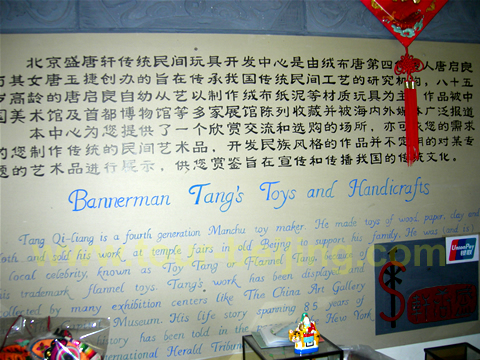 北京盛唐轩传统民间玩具开发中心是由绒布唐第四 人唐启良
与其女唐玉捷创办的旨在传承我国传统民间工艺的研究机构，八十五
岁高龄的唐启良自幼从艺以制作绒布纸泥等材质玩具为主 作品被中
国美术馆及首都博物馆等多家展馆陈列收藏并被海内外媒体广泛报道
本中心为您提供了一个欣赏交流和选购的场所，亦可 您的需求
您制作传统的民间艺术品，开发民族风格的作品并不定期的对某专
题的艺术品进行展示，供您赏鉴旨在宣传和传播我国的传统文化。
Bannerman Tang's Toys and Handicrafts
Tang Qi-liang is a fourth generation Manchu toy maker. He made toys of wood, paper, clay and
cloth and sold his work at temple fairs in old Beijing to support his family. He was (and is)
local celebrity, known as Toy Tang or Flannel Tang
trademark flannel toys. Tang's work has been displayed and
collected by many exhibition centers like The China Art Gallery
Museum. His life story spanning 85 years of
history has been told in the New York
International Herald Tribune
UnionPay
银联